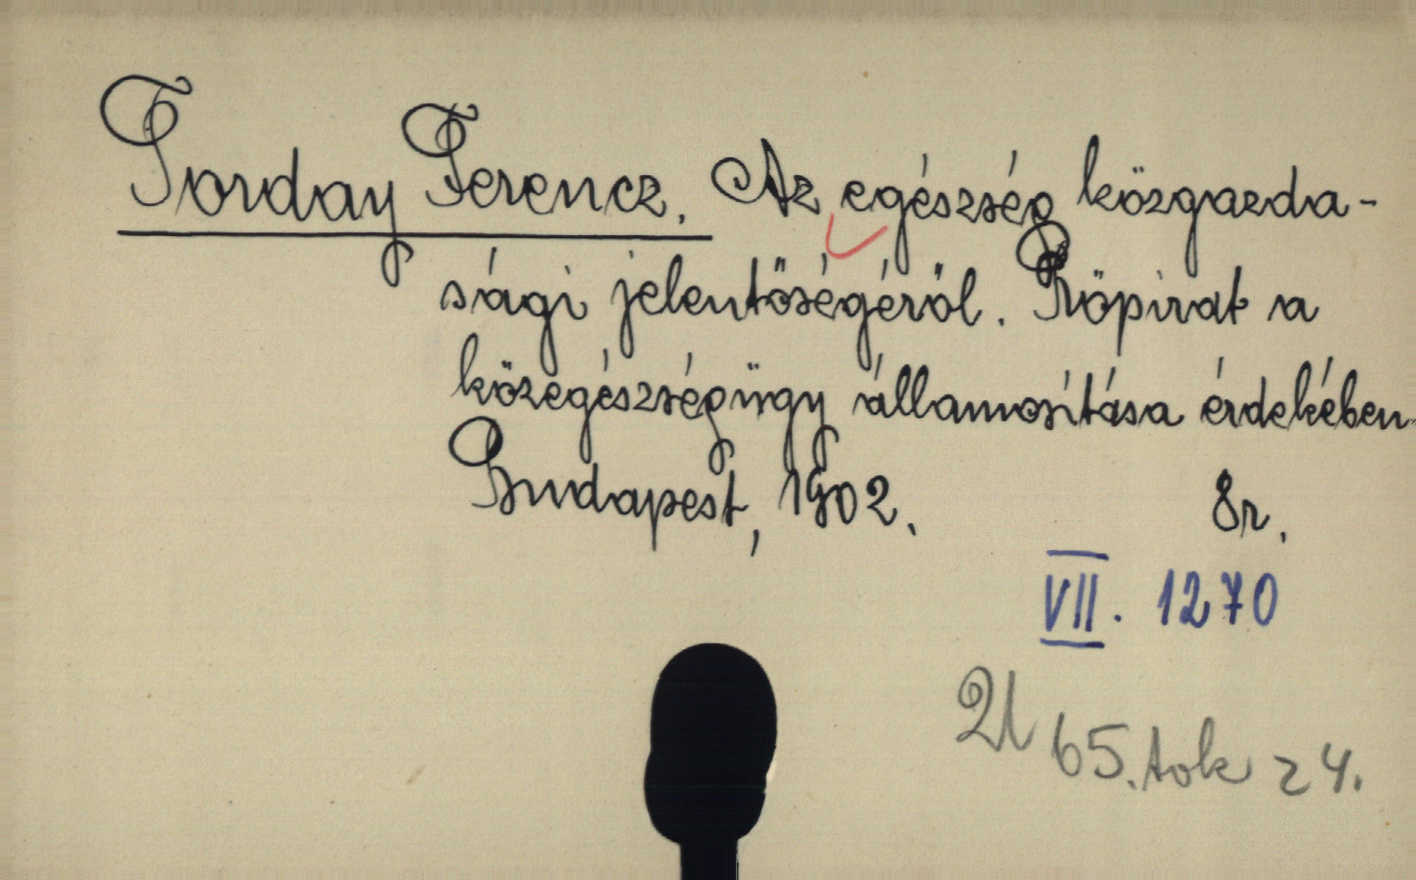 Torday Ferencz. Az egészség közgazda-
sági jelentőségéről. Röpirat a
közegészségügy államosítása érdekében
Budapest, 1902. 8r.
VII. 1270
65. tok 24.